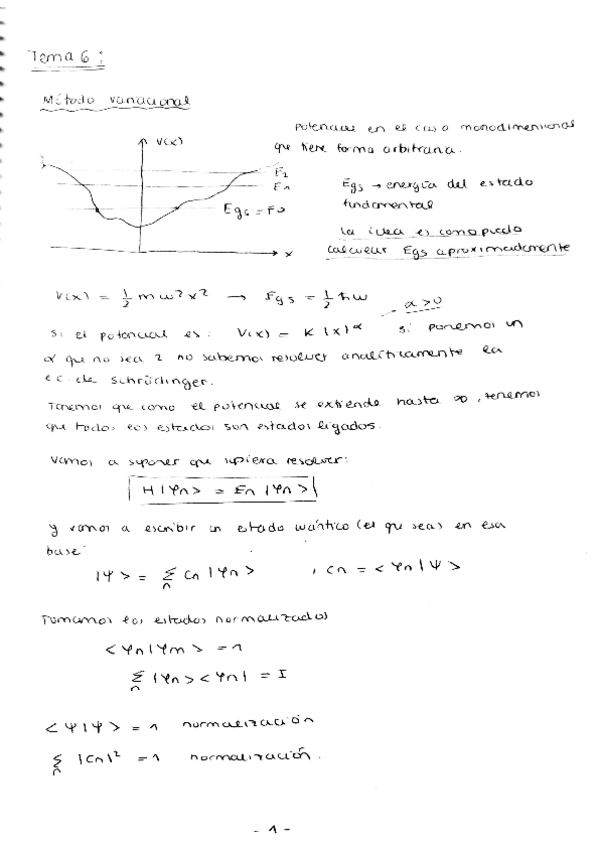 Tema 6 :
Método variacional
potencial en el caso monodimensional
que tiene forma arbitraria.
V(x)
E2
E1
Egs = E0
x
Egs → energía del estado
fundamental
la idea es como puedo
calcular Egs aproximadamente
V(x) = 1/2 m ω² x² → Egs = 1/2 ħω
α > 0
Si el potencial es: V(x) = K |x|^α si ponemos un
α que no sea 2 no sabemos resolver analíticamente la
ec. de Schrödinger.
Tenemos que como el potencial se extiende hasta ∞, tenemos
que todos los estados son estados ligados.
Vamos a suponer que supiera resolver:
H |φn> = En |φn>
y vamos a escribir un estado cuántico (el que sea) en esa
base:
|Ψ> = Σn Cn |φn> , cn = <φn|Ψ>
Tomamos los estados normalizados
<φn|φm> = 1
Σn |φn><φn| = I
<Ψ|Ψ> = 1 normalización
Σn |Cn|² = 1 normalización.
- 1 -